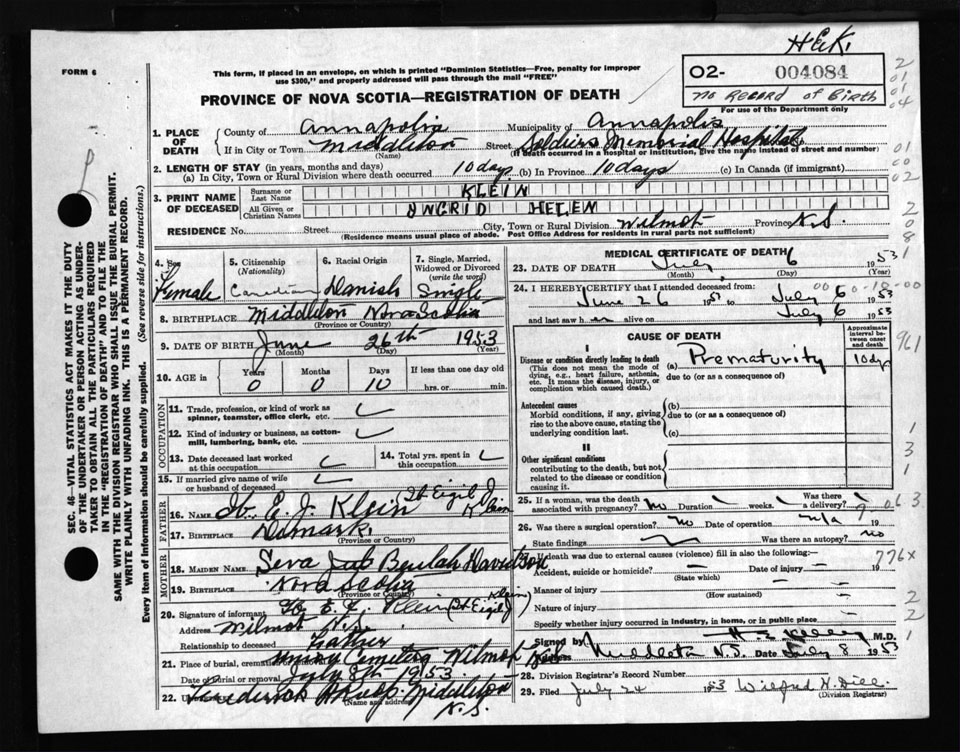 H.E.K.
FORM 6
This form, if placed in an envelope, on which is printed "Dominion Statistics—Free, penalty for improper
use $300," and properly addressed will pass through the mail "FREE"
O2- 004084
No Record of Birth
For use of the Department only
PROVINCE OF NOVA SCOTIA—REGISTRATION OF DEATH
SEC. 46—VITAL STATISTICS ACT MAKES IT THE DUTY
OF THE UNDERTAKER OR PERSON ACTING AS UNDER-
TAKER TO OBTAIN ALL THE PARTICULARS REQUIRED
IN THE "REGISTRATION OF DEATH" AND TO FILE THE
SAME WITH THE DIVISION REGISTRAR WHO SHALL ISSUE THE BURIAL PERMIT.
WRITE PLAINLY WITH UNFADING INK. THIS IS A PERMANENT RECORD.
Every item of Information should be carefully supplied. (See reverse side for instructions.)
1. PLACE OF DEATH County of Annapolis Municipality of Annapolis
If in City or Town Middleton (Name) Street Soldiers Memorial Hospital
(If death occurred in a hospital or institution, give the name instead of street and number)
2. LENGTH OF STAY (in years, months and days)
(a) In City, Town or Rural Division where death occurred 10 days (b) In Province 10 days (c) In Canada (if immigrant)
3. PRINT NAME OF DECEASED Surname or Last Name KLEIN
All Given or Christian Names INGRID HELEN
RESIDENCE No. Street City, Town or Rural Division Wilmot Province N.S.
(Residence means usual place of abode. Post Office Address for residents in rural parts not sufficient)
4. Sex Female
5. Citizenship (Nationality) Canadian
6. Racial Origin Danish
7. Single, Married, Widowed or Divorced (write the word) Single
8. BIRTHPLACE Middleton Nova Scotia
(Province or Country)
9. DATE OF BIRTH June 26th 1953
(Month) (Day) (Year)
10. AGE in Years Months Days If less than one day old
0 0 10 hrs. or min.
OCCUPATION
11. Trade, profession, or kind of work as spinner, teamster, office clerk, etc.
12. Kind of industry or business, as cotton-mill, lumbering, bank, etc.
13. Date deceased last worked at this occupation
14. Total yrs. spent in this occupation
15. If married give name of wife or husband of deceased
FATHER
16. NAME Ib. E. J. Klein Ib Eigil J. Klein
17. BIRTHPLACE Denmark
(Province or Country)
MOTHER
18. MAIDEN NAME Seva Beulah Davidson
19. BIRTHPLACE Nova Scotia
(Province or Country)
20. Signature of informant Ib E. J. Klein (Ib Eigil J Klein)
Address Wilmot N.S.
Relationship to deceased Father
21. Place of burial, cremation Cemetery Wilmot
Date of burial or removal July 8th 1953
22. Undertaker Middleton
N.S.
(Name and address)
MEDICAL CERTIFICATE OF DEATH
23. DATE OF DEATH July 6 1953
(Month) (Day) (Year)
24. I HEREBY CERTIFY that I attended deceased from:
June 26 1953 to July 6 1953
and last saw her alive on July 6 1953
CAUSE OF DEATH
Approximate interval between onset and death
Disease or condition directly leading to death
(This does not mean the mode of dying, e.g., heart failure, asthenia, etc. It means the disease, injury, or complication which caused death.)
(a) Prematurity 10 dys
due to (or as a consequence of)
Antecedent causes
Morbid conditions, if any, giving rise to the above cause, stating the underlying condition last.
(b)
due to (or as a consequence of)
(c)
II
Other significant conditions
contributing to the death, but not related to the disease or condition causing it.
25. If a woman, was the death associated with pregnancy? no Duration weeks. Was there a delivery?
26. Was there a surgical operation? no Date of operation n/a 19
State findings Was there an autopsy? no
27. If death was due to external causes (violence) fill in also the following:—
Accident, suicide or homicide? (State which) Date of injury
Manner of injury (How sustained)
Nature of injury
Specify whether injury occurred in industry, in home, or in public place
Signed by H E Kelley M.D.
Address Middleton N.S. Date July 8 1953
28. Division Registrar's Record Number
29. Filed July 24 1953 Wilfred H. Dill
(Division Registrar)
961
063
776x